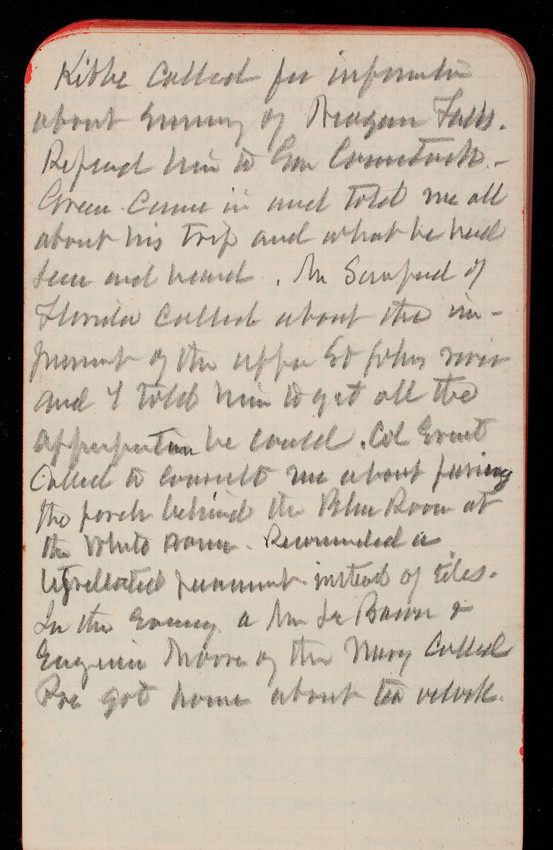 Kibbe called for information
about Survey of Niagara Falls.
Refered him to Gen Comstock. -
Green came in and told me all
about his trip and what he had
seen and heard. Mr Sanford of
Florida called about the im-
provement of the upper St Johns river
and I told him to get all the
appropriation he could. Col Ernst
called to consult me about paving
the porch behind the Blue Room at
the White House. Recommended a
pavement instead of tiles.
In the Evening a Mr La Baron &
Engineer Moore of the Navy called
Roe got home about ten oclock.